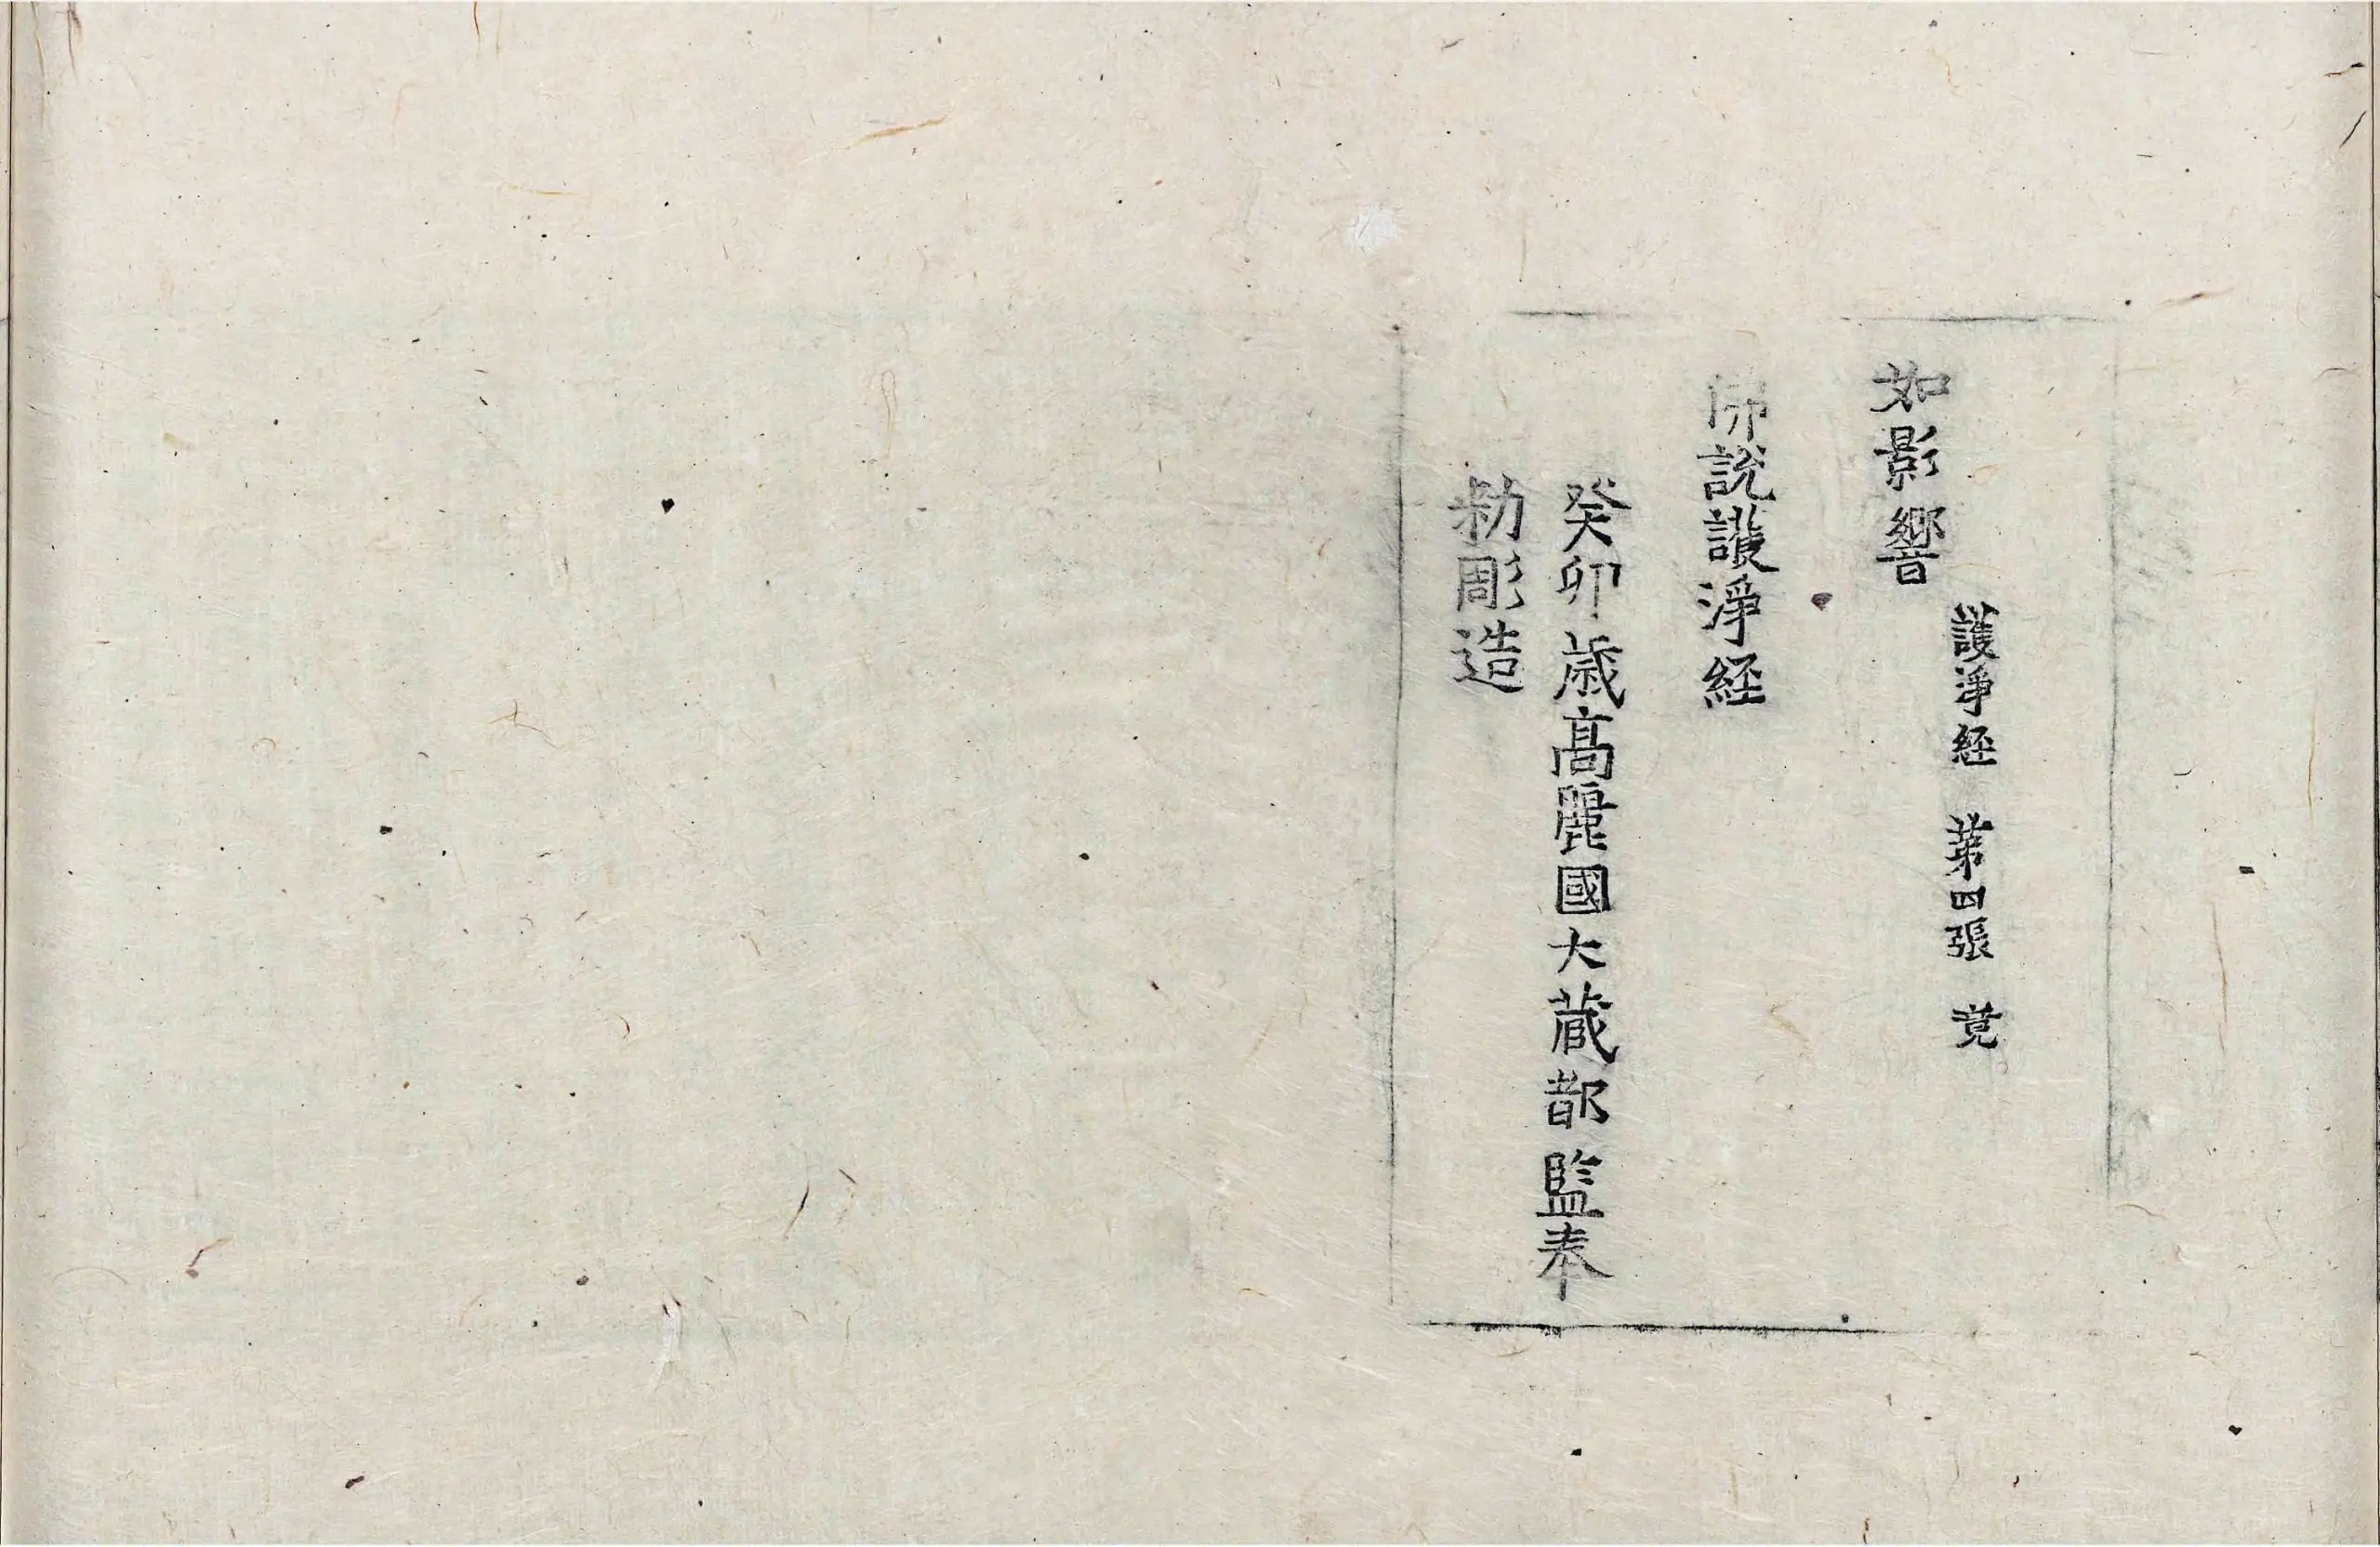 護淨經 苐四張 竟
如影響
佛說護淨経
癸卯歲髙麗國大藏都監奉
勑彫造